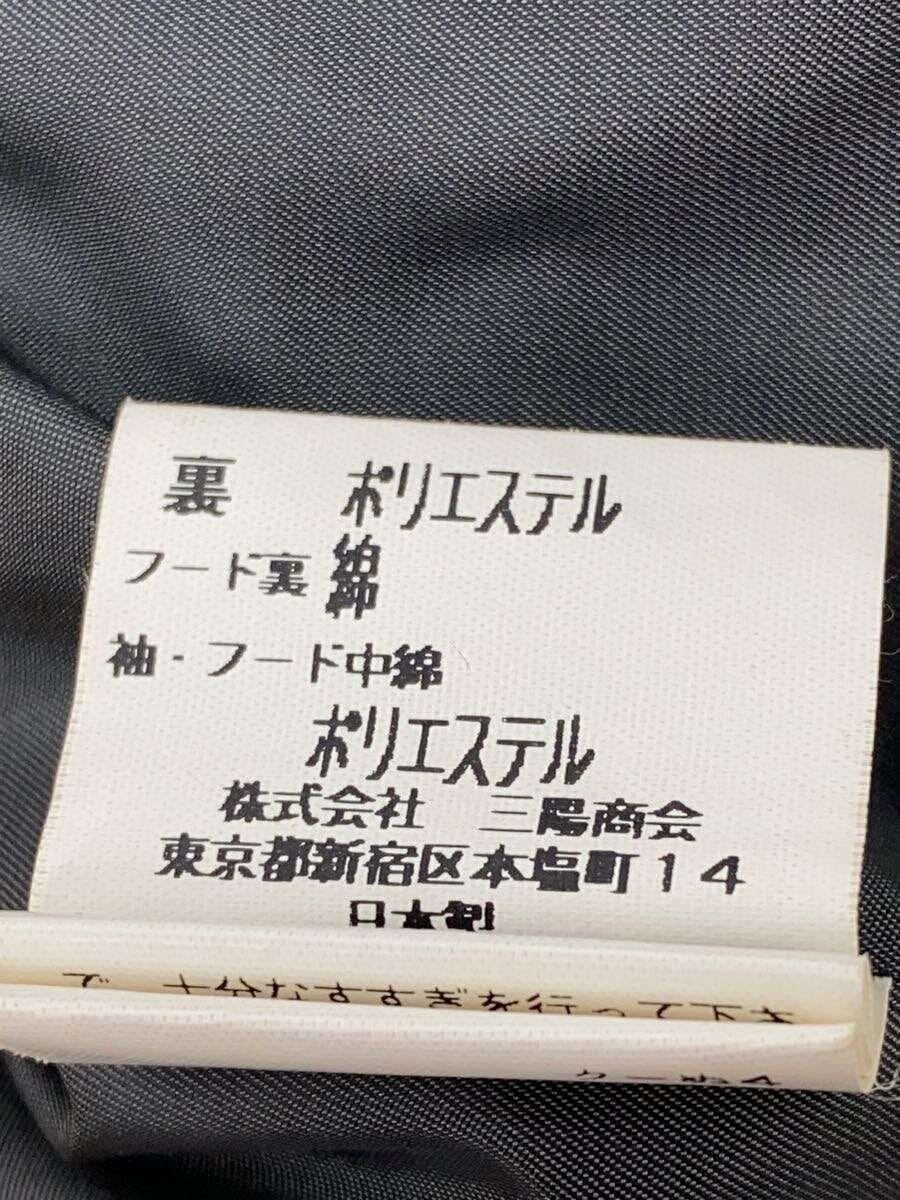 裏 ポリエステル
フード裏 綿
袖・フード中綿
ポリエステル
株式会社 三陽商会
東京都新宿区本塩町14
日本製
で、十分なすすぎを行って下さ